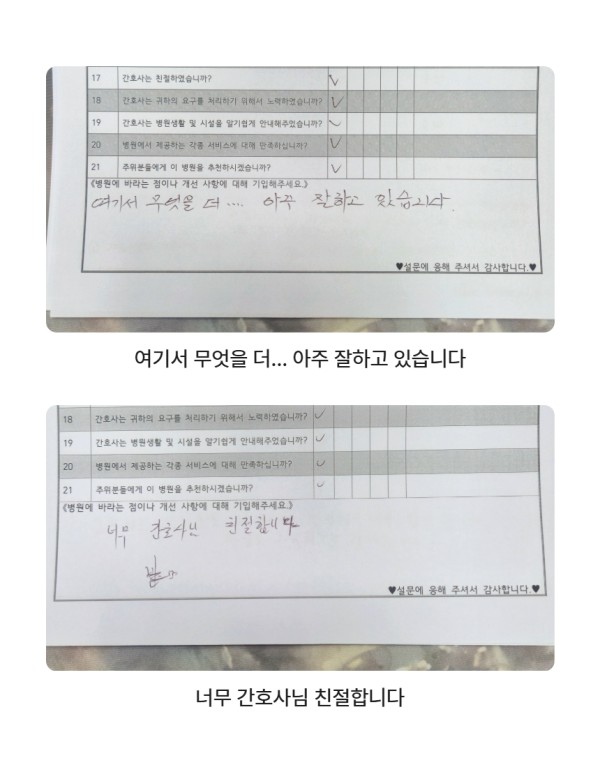 17 간호사는 친절하였습니까?
18 간호사는 귀하의 요구를 처리하기 위해서 노력하였습니까?
19 간호사는 병원생활 및 시설을 알기쉽게 안내해주었습니까?
20 병원에서 제공하는 각종 서비스에 대해 만족하십니까?
21 주위분들에게 이 병원을 추천하시겠습니까?
《병원에 바라는 점이나 개선 사항에 대해 기입해주세요.》
여기서 무엇을 더.... 아주 잘하고 있습니다.
♥설문에 응해 주셔서 감사합니다.♥
여기서 무엇을 더... 아주 잘하고 있습니다
18 간호사는 귀하의 요구를 처리하기 위해서 노력하였습니까?
19 간호사는 병원생활 및 시설을 알기쉽게 안내해주었습니까?
20 병원에서 제공하는 각종 서비스에 대해 만족하십니까?
21 주위분들에게 이 병원을 추천하시겠습니까?
《병원에 바라는 점이나 개선 사항에 대해 기입해주세요.》
너무 간호사님 친절합니다
♥설문에 응해 주셔서 감사합니다.♥
너무 간호사님 친절합니다